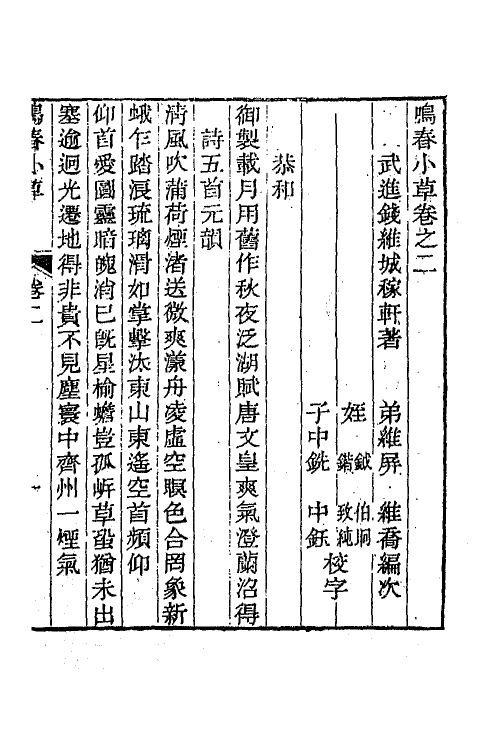 鳴春小草卷之二
武進錢維城稼軒著 弟維屏 維喬編次
姪 鉞 伯坰
鏏 致純
子中銑 中鈺 校字
恭和
御製載月用舊作秋夜泛湖賦唐文皇爽氣澄蘭沼得
詩五首元韻
淸風吹蒲荷煙渚送微爽瀠舟凌虛空暝色合罔象新
蛾乍踏浪琉璃滑如掌擊汰東山東遙空首頻仰
仰首愛圓靈暗魄消已旣星榆蟾豈孤㟁草蛩猶未出
塞逾迴光遷地得非貴不見塵寰中齊州一煙氣
鳴春小草 卷二